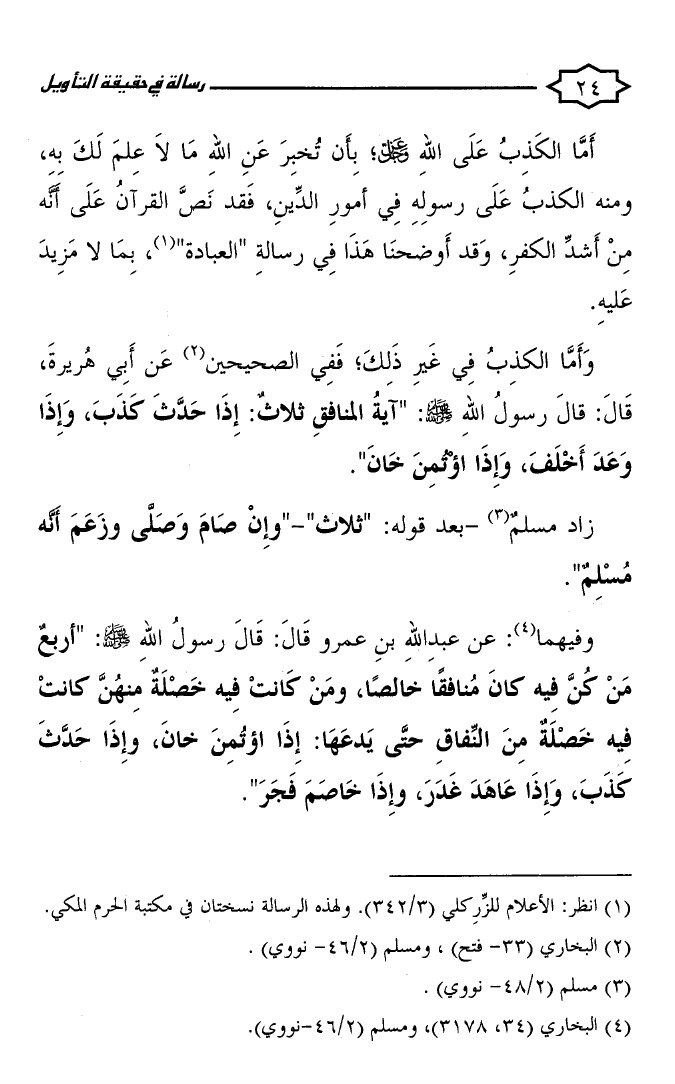 ٢٤ رسالة في حقيقة التأويل
أَمَّا الكَذِبُ عَلَى اللهِ ﷻ؛ بِأَن تُخبِرَ عَنِ اللهِ مَا لاَ عِلمَ لَكَ بِهِ،
ومنه الكذبُ عَلَى رسولِهِ فِي أمورِ الدِّينِ، فَقد نَصَّ القرآنُ عَلَى أَنَّه
مِنْ أَشدِّ الكفرِ، وَقد أَوضحنَا هَذَا فِي رسالةِ "العبادة"(١)، بِمَا لا مَزِيدَ
عَليهِ.
وَأَمَّا الكَذِبُ فِي غَيرِ ذَلِكَ؛ فَفِي الصحيحين(٢) عَن أَبِي هُريرةَ،
قَالَ: قالَ رسولُ اللهِ ﷺ: "آيةُ المنافقِ ثلاثٌ: إِذَا حَدَّثَ كَذَبَ، وَإِذَا
وَعَدَ أَخْلَفَ، وَإِذَا اؤْتُمِنَ خَانَ".
زاد مسلمٌ(٣) -بعد قوله: "ثلاث"-"وإِنْ صَامَ وَصَلَّى وزَعَمَ أَنَّه
مُسْلِمٌ".
وفيهما(٤): عن عبدِاللهِ بنِ عمرو قَالَ: قَالَ رسولُ اللهِ ﷺ: "أربعٌ
مَنْ كُنَّ فِيه كانَ مُنافقًا خالصًا، ومَنْ كَانَتْ فِيه خَصْلَةٌ مِنهُنَّ كانتْ
فِيه خَصْلَةٌ مِنَ النِّفاقِ حتَّى يَدعَهَا: إِذَا اؤتُمِنَ خانَ، وإِذَا حَدَّثَ
كَذَبَ، وَإِذَا عَاهَدَ غَدَرَ، وإِذَا خَاصَمَ فَجَرَ".
(١) انظر: الأعلام للزِّركلي (٣٤٢/٣). ولهذه الرسالة نسختان في مكتبة الحرم المكي.
(٢) البخاري (٣٣- فتح) ، ومسلم (٤٦/٢- نووي) .
(٣) مسلم (٤٨/٢- نووي) .
(٤) البخاري (٣٤، ٣١٧٨)، ومسلم (٤٦/٢-نووي).